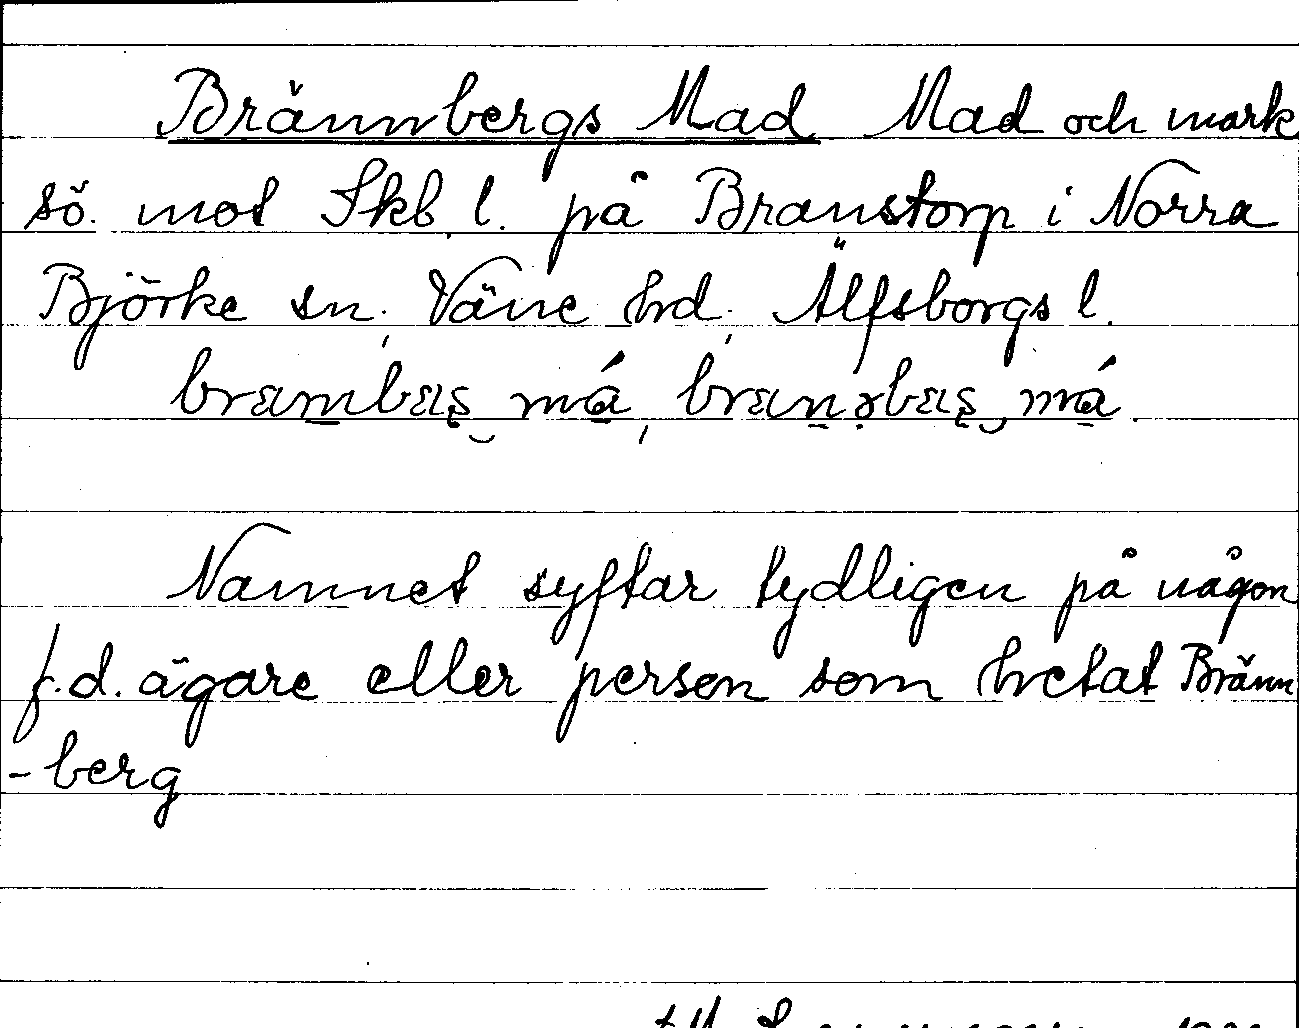 Brännbergs Mad Mad och mark
sö. mot Skb. l. på Branstorp i Norra
Björke sn, Väne hd, Älfsborgs l.
Namnet syftar tydligen på någon
f.d. ägare eller person som hetat Bränn
-berg